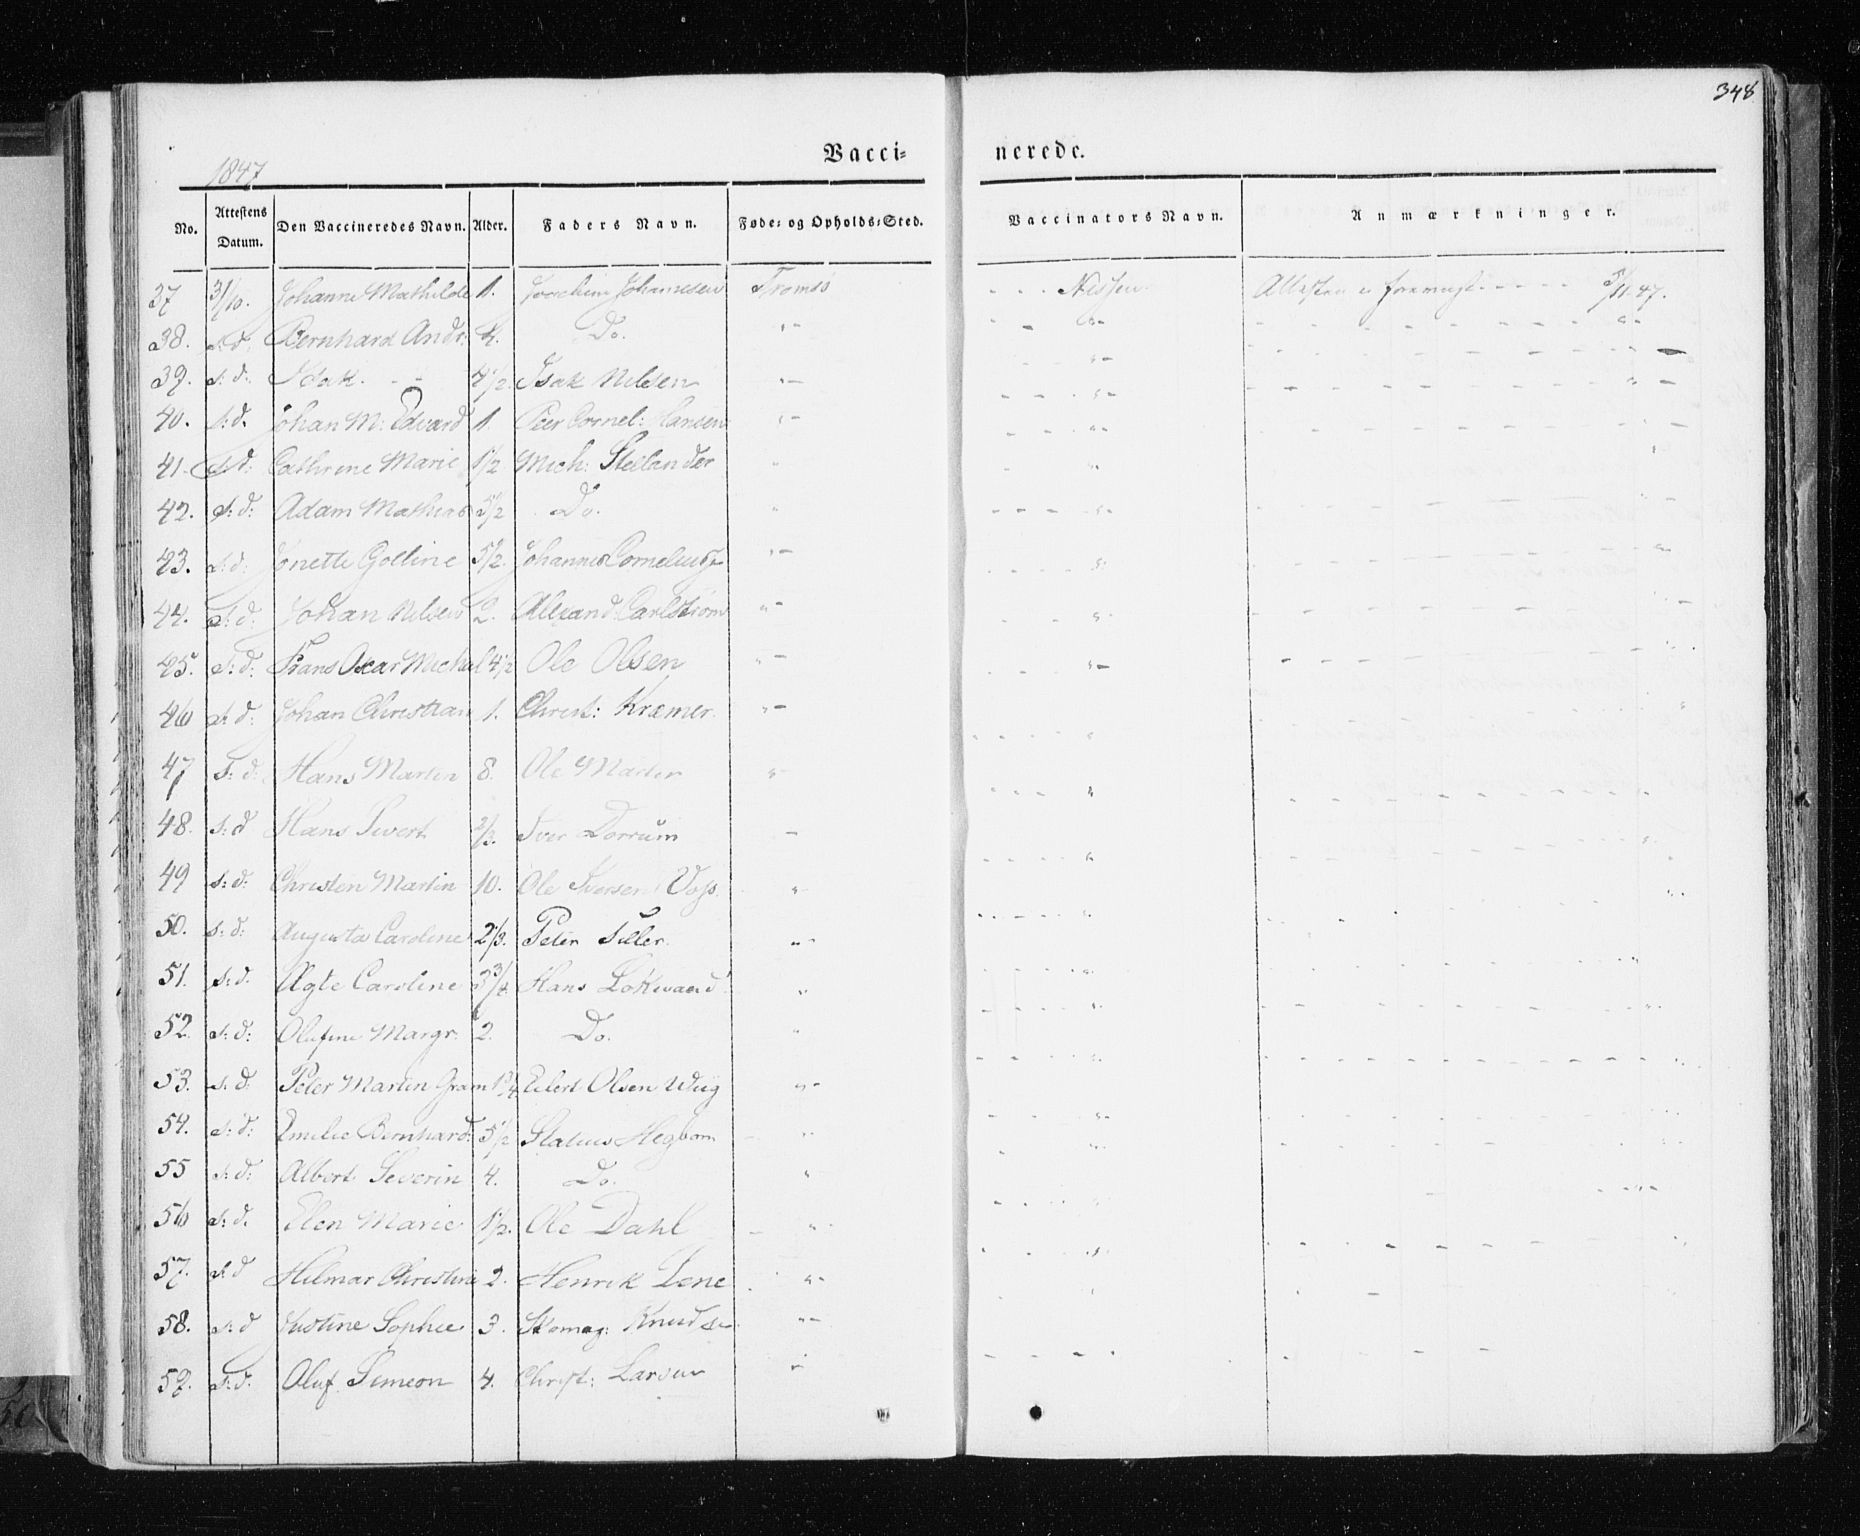 348
1847
Vacci= nerede.
No. Attestens Datum. Den Vaccineredes Navn. Alder. Faders Navn. Føde= og Opholds=Sted. Vaccinators Navn. Anmærkninger.
37 31/10. Johanne Mathilde 1. Joachim Johannesen Tromsø - - - Nissen Attesten foreviist - - - - - 5/11 47.
38. s. d. Bernhard Andr: Do. "- - - "- - - - - - - - "-
39. s: d: Isak. - - 4 1/2. Isak Nilsen "-
40. s: d. Johan M: Edvard 1. Peer Cornel: Hansen "-
41. s: d: Cathrine Marie 1 1/2 Mich: Stellander "
42. s: d: Adam Mathias 3 1/2 Do. "
43. s: d: Jonette Goltine 5 1/2. Johannes Cornelius "-
44. s: d: Johan Nilsen 2. Alexand: Carlstrøm "-
45. s: d: Frans Oscar Michal 4 1/2 Ole Olsen "-
46 s: d: Johan Christian 1. Christ: Kræmer. "-
47 s: d: Hans Martin 8. Ole Martin "-
48. s: d Hans Sivert 2/3. Iver Dorrum -
49 s: d: Christen Martin 10. Ole Iversen Voss. "
50. s: d: Augusta Caroline 2 1/3. Peter Filler. "-
51. s: d. Agte Caroline 3 3/4. Hans "
52. s: d: Olufine Margr: 2. Do. "
53. s. d: Peter Martin Gram 1 3/4 Eilert Olsen Wiig "-
54. s: d: Emilie Bernhard: 5 1/2 Statius Hegbom "
55 s: d: Albert Severin 4. Do. "
56 s: d. Elen Marie 1 1/2. Ole Dahl "
57. s: d Hilmar Christine 2. Henrik Lene "-
58. s: d Justine Sophie 3. Skomag: Knudsen "-
59. s: d. Oluf Simeon 4. Christ: Larsen "